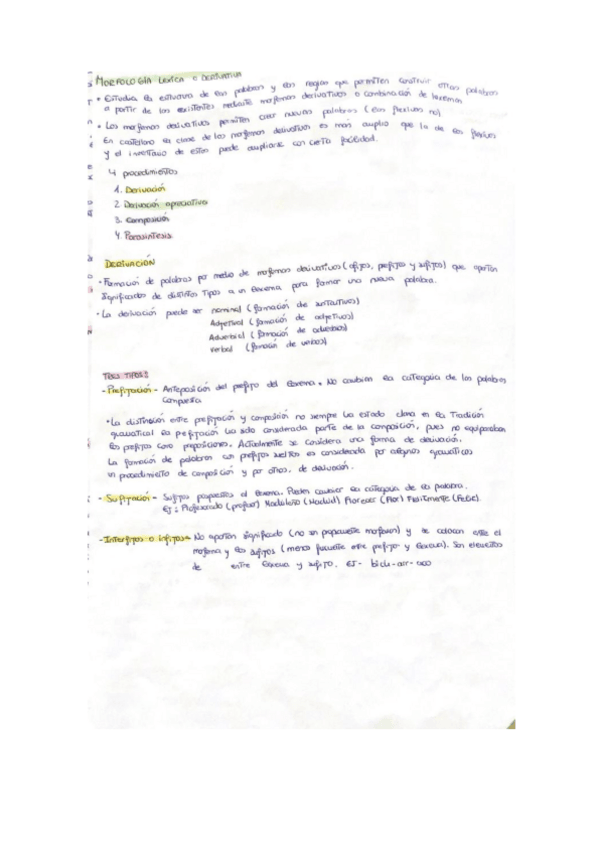 MORFOLOGÍA LÉXICA O DERIVATIVA
• Estudia la estructura de las palabras y las reglas que permiten construir otras palabras
a partir de las existentes mediante morfemas derivativos o combinación de lexemas
• Los morfemas derivativos permiten crear nuevas palabras (los flexivos no)
En castellano la clase de los morfemas derivativos es más amplia que la de los flexivos
y el inventario de estos puede ampliarse con cierta facilidad.
4 procedimientos
1. Derivación
2 Derivación apreciativa
3. Composición
4. Parasíntesis
DERIVACIÓN
• Formación de palabras por medio de morfemas derivativos (afijos, prefijos y sufijos) que aportan
significados de distintos tipos a un lexema para formar una nueva palabra.
• La derivación puede ser nominal (formación de sustantivos)
Adjetival (formación de adjetivos)
Adverbial (formación de adverbios)
verbal (formación de verbos)
TRES TIPOS
- Prefijación - Anteposición del prefijo del lexema. No cambian la categoría de las palabras
compuesta
• La distinción entre prefijación y composición no siempre ha estado clara en la Tradición
gramatical la prefijación ha sido considerada parte de la composición, pues no equiparaban
los prefijos como preposiciones. Actualmente se considera una forma de derivación.
La formación de palabras con prefijos sueltos es considerada por algunos gramáticos
un procedimiento de composición y por otros, de derivación.
- Sufijación - Sufijos pospuestos al lexema. Pueden cambiar la categoría de la palabra.
EJ: Profesorado (profesor) Madrileño (Madrid) Florecer (Flor) Fácilmente (Fácil).
- Interfijos o infijos - No aportan significado (no son propiamente morfemas) y se colocan entre el
morfema y los sufijos (menos frecuente entre prefijo y lexema). Son elementos
de entre lexema y sufijo. EJ- bich-arr-aco